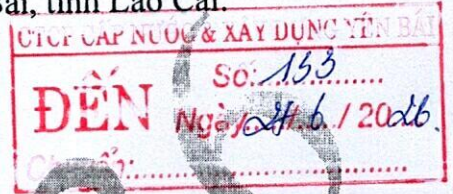 Bái, tỉnh Lào Cai.
CTCP CẤP NƯỚC & XÂY DỰNG YÊN BÁI
Số: 153
ĐẾN
Ngày /6/2026.
Chuyển: